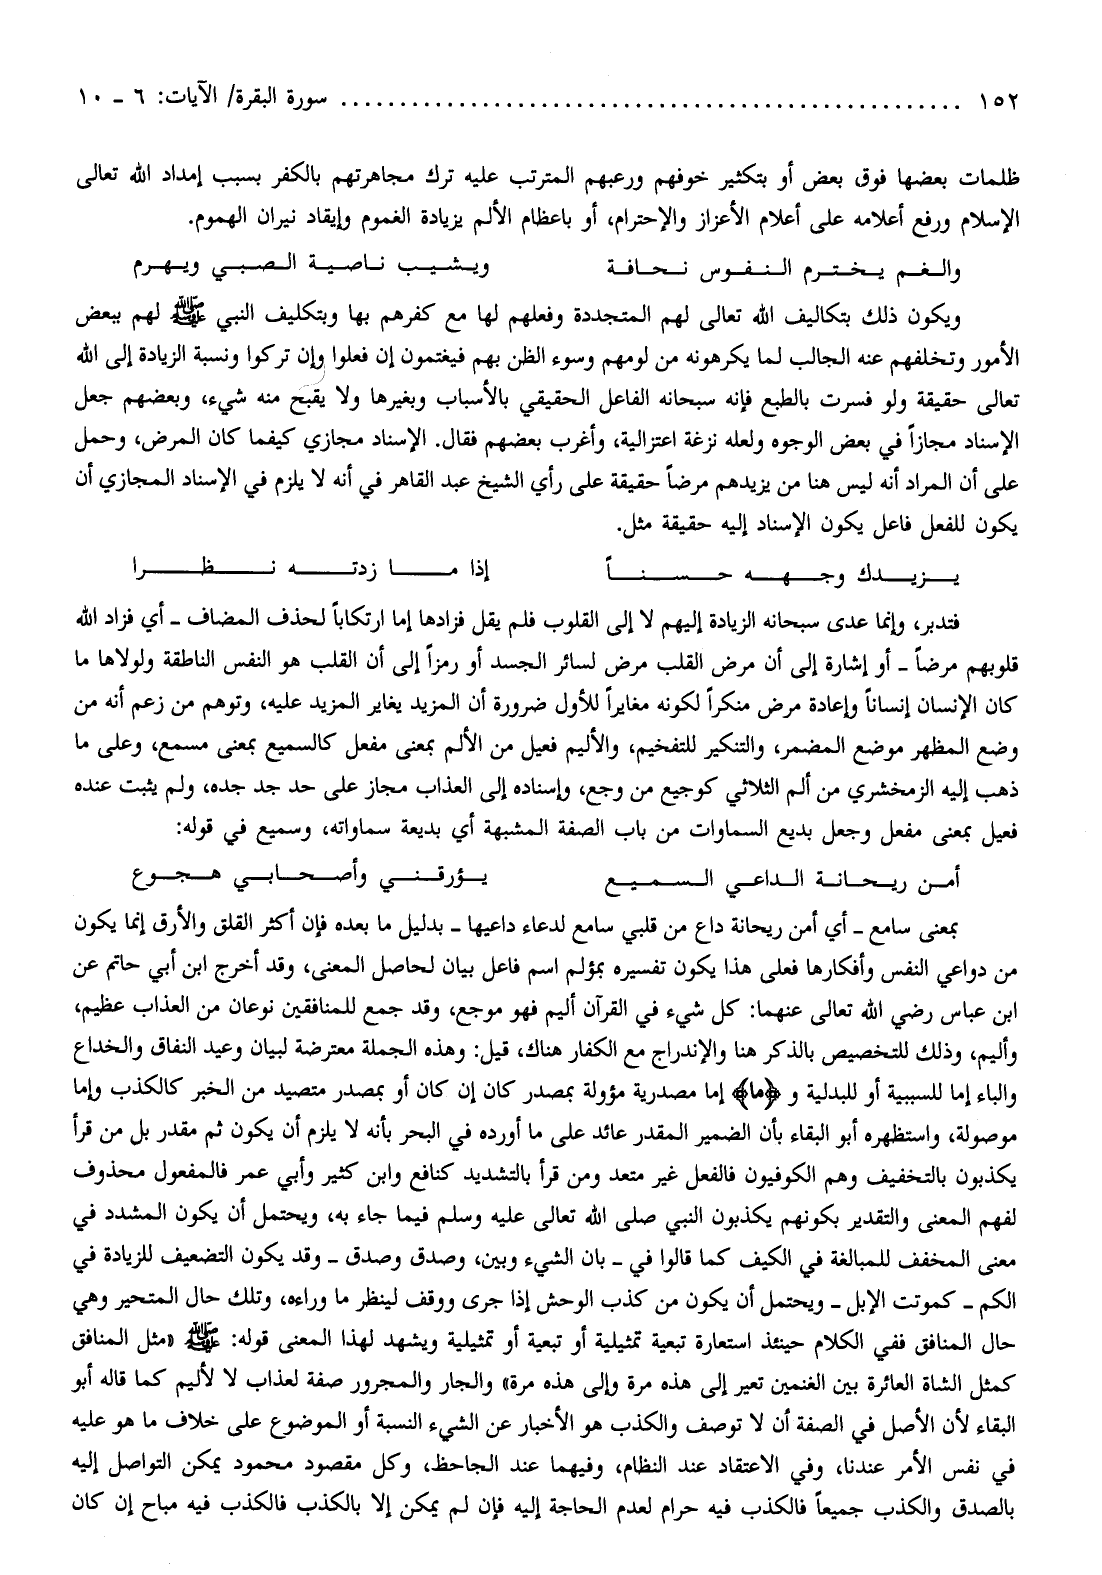 ١٥٢ ........................................................ سورة البقرة/ الآيات: ٦ ـ ١٠
ظلمات بعضها فوق بعض أو بتكثير خوفهم ورعبهم المترتب عليه ترك مجاهرتهم بالكفر بسبب إمداد الله تعالى
الإسلام ورفع أعلامه على أعلام الأعزاز والإحترام، أو باعظام الألم يزيادة الغموم وإيقاد نيران الهموم.
والغم يخترم النفوس نحافة ويشيب ناصية الصبي ويهرم
ويكون ذلك بتكاليف الله تعالى لهم المتجددة وفعلهم لها مع كفرهم بها وبتكليف النبي ﷺ لهم ببعض
الأمور وتخلفهم عنه الجالب لما يكرهونه من لومهم وسوء الظن بهم فيغتمون إن فعلوا وإن تركوا ونسبة الزيادة إلى الله
تعالى حقيقة ولو فسرت بالطبع فإنه سبحانه الفاعل الحقيقي بالأسباب وبغيرها ولا يقبح منه شيء، وبعضهم جعل
الإسناد مجازاً في بعض الوجوه ولعله نزغة اعتزالية، وأغرب بعضهم فقال. الإسناد مجازي كيفما كان المرض، وحمل
على أن المراد أنه ليس هنا من يزيدهم مرضاً حقيقة على رأي الشيخ عبد القاهر في أنه لا يلزم في الإسناد المجازي أن
يكون للفعل فاعل يكون الإسناد إليه حقيقة مثل.
يزيدك وجهه حسناً إذا ما زدته نظرا
فتدبر، وإنما عدى سبحانه الزيادة إليهم لا إلى القلوب فلم يقل فزادها إما ارتكاباً لحذف المضاف ـ أي فزاد الله
قلوبهم مرضاً ـ أو إشارة إلى أن مرض القلب مرض لسائر الجسد أو رمزاً إلى أن القلب هو النفس الناطقة ولولاها ما
كان الإنسان إنساناً وإعادة مرض منكراً لكونه مغايراً للأول ضرورة أن المزيد يغاير المزيد عليه، وتوهم من زعم أنه من
وضع المظهر موضع المضمر، والتنكير للتفخيم، والأليم فعيل من الألم بمعنى مفعل كالسميع بمعنى مسمع، وعلى ما
ذهب إليه الزمخشري من ألم الثلاثي كوجيع من وجع، وإسناده إلى العذاب مجاز على حد جد جده، ولم يثبت عنده
فعيل بمعنى مفعل وجعل بديع السماوات من باب الصفة المشبهة أي بديعة سماواته، وسميع في قوله:
أمن ريحانة الداعي السميع يؤرقني وأصحابي هجوع
بمعنى سامع ـ أي أمن ريحانة داع من قلبي سامع لدعاء داعيها ـ بدليل ما بعده فإن أكثر القلق والأرق إنما يكون
من دواعي النفس وأفكارها فعلى هذا يكون تفسيره بمؤلم اسم فاعل بيان لحاصل المعنى، وقد أخرج ابن أبي حاتم عن
ابن عباس رضي الله تعالى عنهما: كل شيء في القرآن أليم فهو موجع، وقد جمع للمنافقين نوعان من العذاب عظيم،
وأليم، وذلك للتخصيص بالذكر هنا والإندراج مع الكفار هناك، قيل: وهذه الجملة معترضة لبيان وعيد النفاق والخداع
والباء إما للسببية أو للبدلية و ﴿ما﴾ إما مصدرية مؤولة بمصدر كان إن كان أو بمصدر متصيد من الخبر كالكذب وإما
موصولة، واستظهره أبو البقاء بأن الضمير المقدر عائد على ما أورده في البحر بأنه لا يلزم أن يكون ثم مقدر بل من قرأ
يكذبون بالتخفيف وهم الكوفيون فالفعل غير متعد ومن قرأ بالتشديد كنافع وابن كثير وأبي عمر فالمفعول محذوف
لفهم المعنى والتقدير بكونهم يكذبون النبي صلى الله تعالى عليه وسلم فيما جاء به، ويحتمل أن يكون المشدد في
معنى المخفف للمبالغة في الكيف كما قالوا في ـ بان الشيء وبين، وصدق وصدق ـ وقد يكون التضعيف للزيادة في
الكم ـ كموتت الإبل ـ ويحتمل أن يكون من كذب الوحش إذا جرى ووقف لينظر ما وراءه، وتلك حال المتحير وهي
حال المنافق ففي الكلام حينئذ استعارة تبعية تمثيلية أو تبعية أو تمثيلية ويشهد لهذا المعنى قوله: ﷺ «مثل المنافق
كمثل الشاة العائرة بين الغنمين تعير إلى هذه مرة وإلى هذه مرة» والجار والمجرور صفة لعذاب لا لأليم كما قاله أبو
البقاء لأن الأصل في الصفة أن لا توصف والكذب هو الأخبار عن الشيء النسبة أو الموضوع على خلاف ما هو عليه
في نفس الأمر عندنا، وفي الاعتقاد عند النظام، وفيهما عند الجاحظ، وكل مقصود محمود يمكن التواصل إليه
بالصدق والكذب جميعاً فالكذب فيه حرام لعدم الحاجة إليه فإن لم يمكن إلا بالكذب فالكذب فيه مباح إن كان